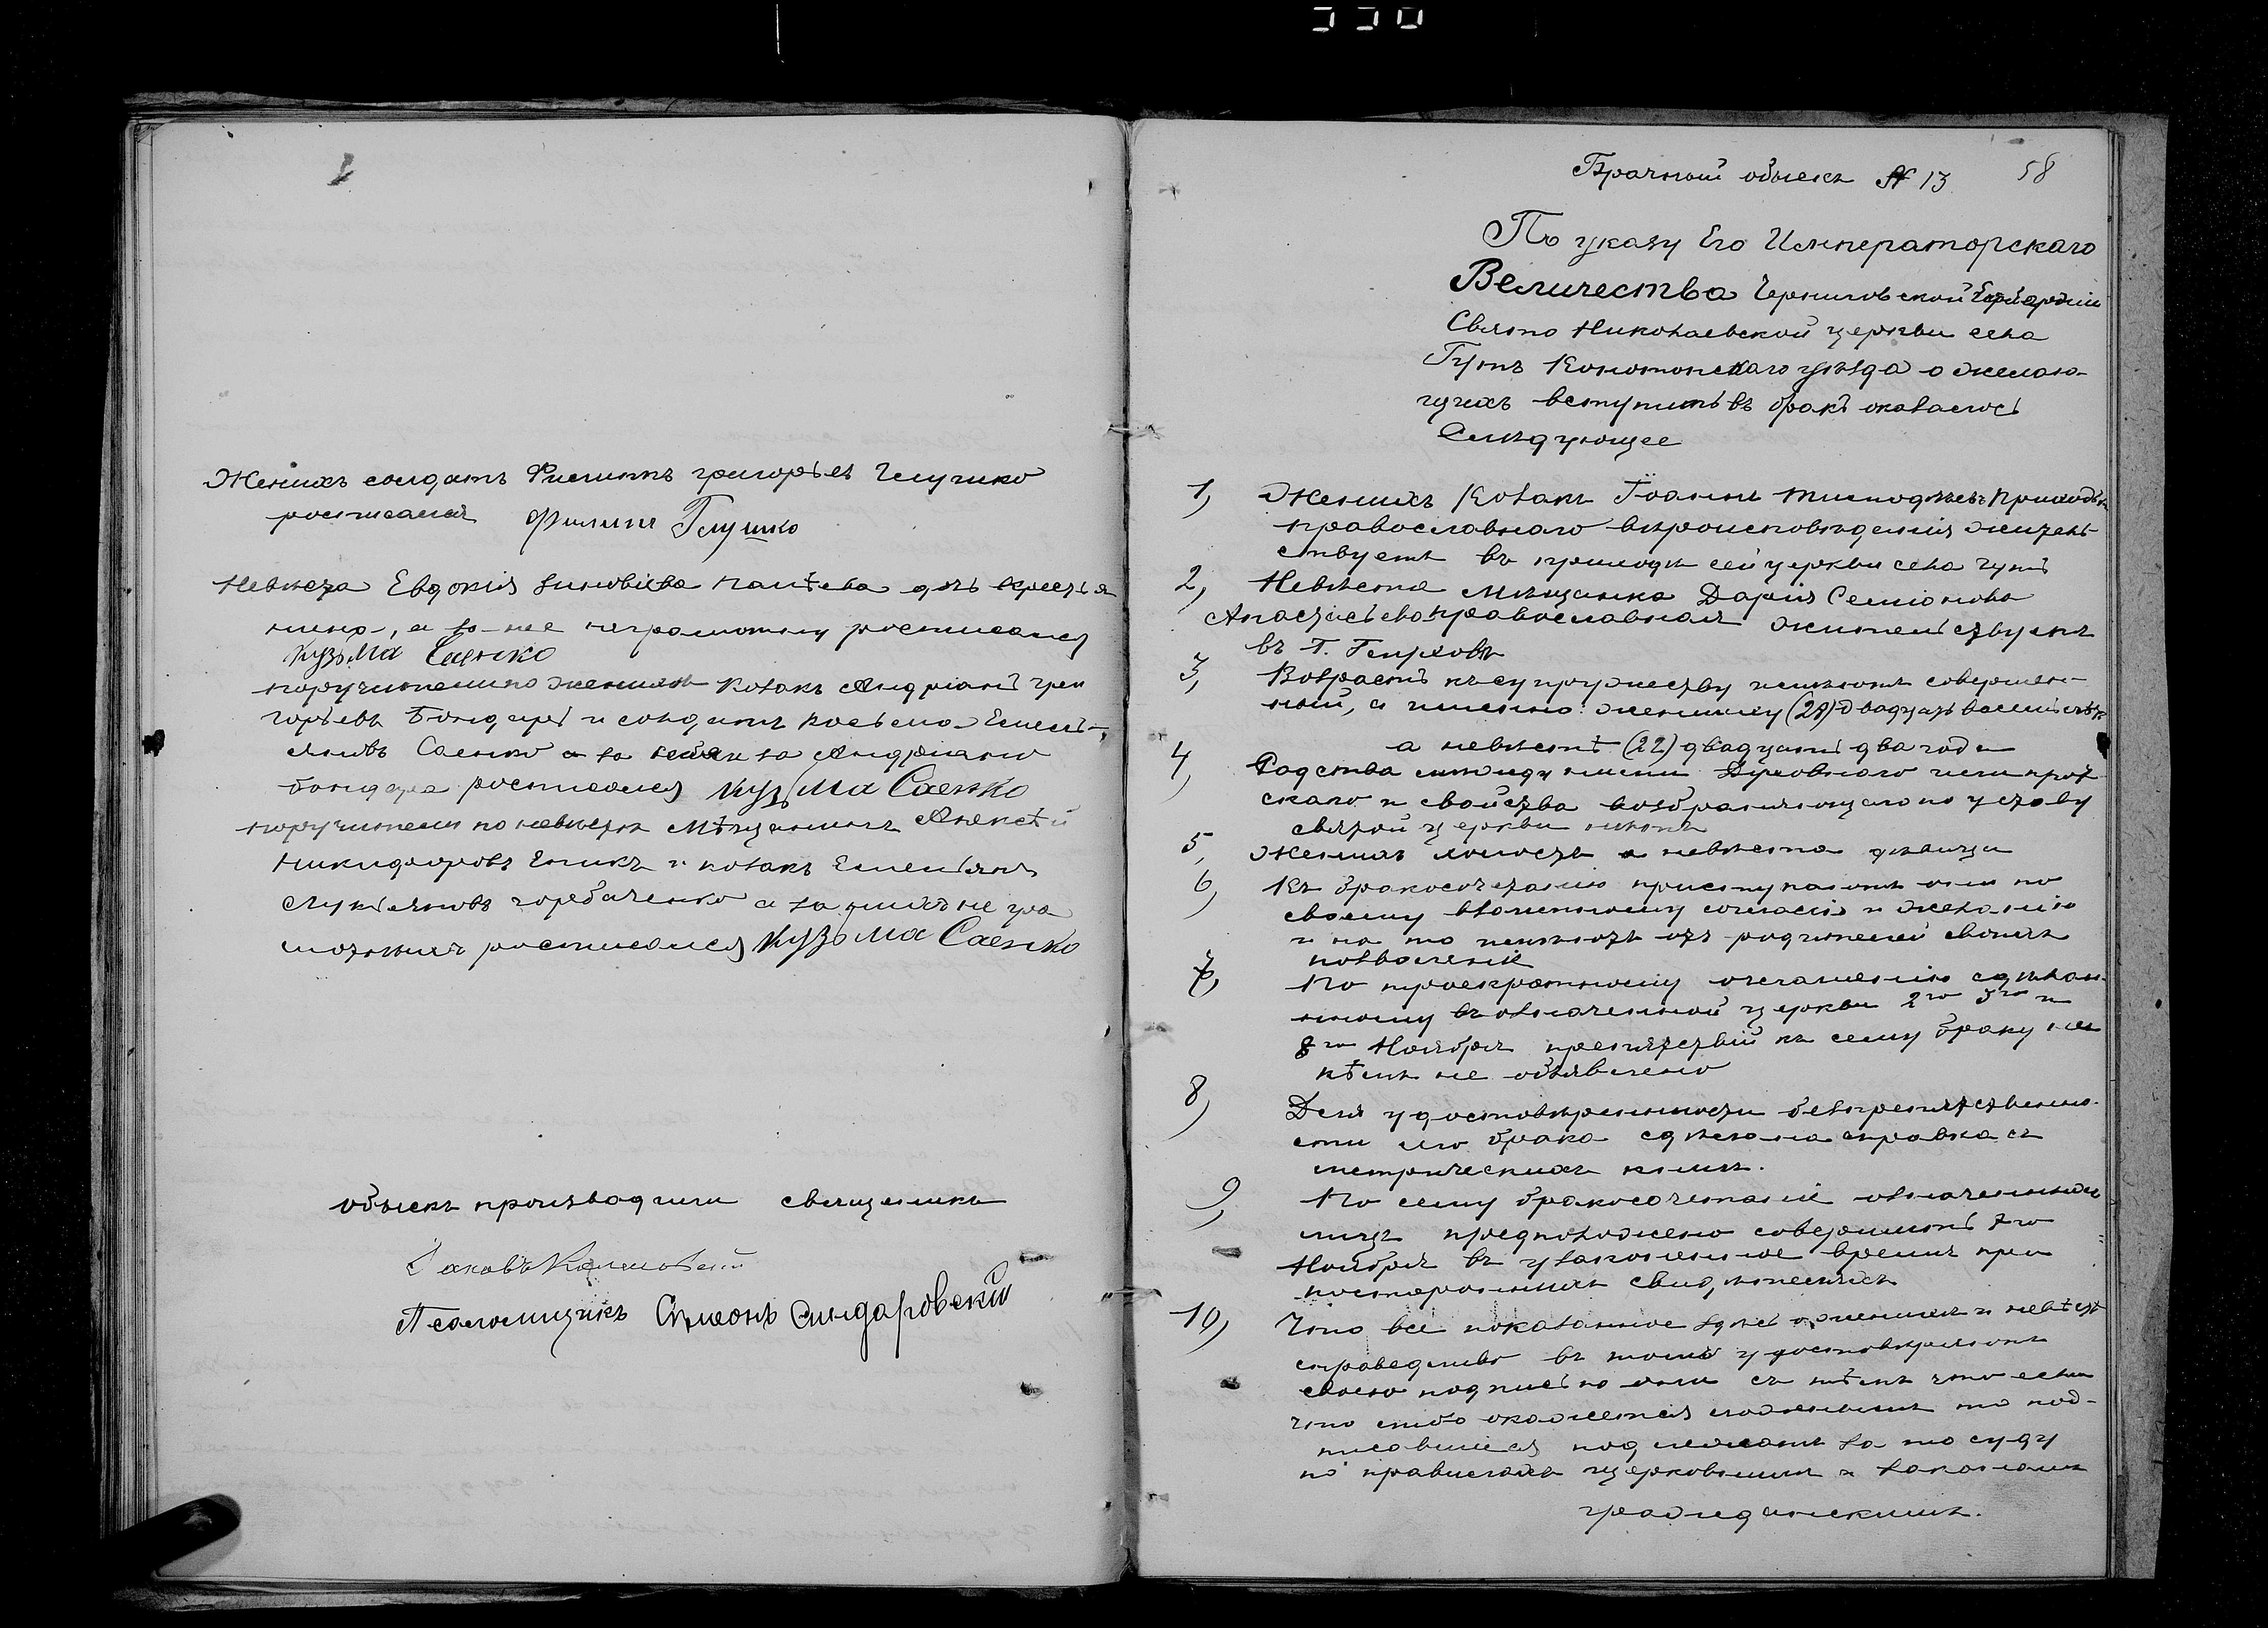 Женихъ солдатъ Филиппъ григорьев Глушко
росписался Филипп Глушко
Невѣста Евдокія Зиновіева дочь крестья
нина, а за нее неграмотну росписался
Кузьма Саенко
поручители по женихѣ козакъ Андріанъ гри
горьевъ Бондарь и солдатъ Косьма Емель-
яновъ Саенко а за Андріана
бондаря росписался Кузьма Саенко
поручители по невѣстѣ Мѣщанинъ Алексѣй
Никифоровъ и козакъ Емельянъ
Лукьяновъ горбаченко а за нихъ не гра
мотныхъ росписался Кузьма Саенко
обыскъ производили священникъ
Іаковъ
Псаломщикъ Сѵмеонъ Синдаровскій
58
Брачный обыскъ № 13
По указу Его Императорскаго
Величества Черниговской Епархіи
Свято Николаевской церкви села
Гутъ Конотопскаго уѣзда о желаю-
щихъ вступить въ бракъ оказалось
Слѣдующее
1, Женихъ Козакъ Іоаннъ Приходько
православнаго вѣроисповѣданія житель-
ствуетъ въ приходѣ сей церкви села гутъ
2, Невѣста Мѣщанка Дарія Семіонова
православная жительствуетъ
въ Г. Глуховѣ
3, Возрастъ къ супружеству имѣютъ совершен-
ный, а именно: жениху (28) двадцать восемь лѣтъ
а невѣстѣ (22) двадцать два года
4, Родства между ними Духовнаго или
скаго и свойства возбраняющаго по уставу
святой церкви нѣтъ
5, Женихъ холостъ а невѣста дѣвица
6, Къ бракосочетанію приступаютъ они по
своему взаимному согласію и желанію
и на то имѣютъ отъ родителей своихъ
позволеніе
7, По троекратному оглашенію сдѣлан-
ному въ означенной церкви 2го 3го и
8го Ноября препятствій къ сему браку ни
кѣмъ не объявлено
8, Для удостовѣренности безпрепятственно-
сти сего брака сдѣлана справка съ
метрическихъ книгъ.
9, По сему бракосочетаніе означенныхъ
лицъ предположено совершить 8го
Ноября въ узаконенное время при
постороннихъ свидѣтеляхъ
10, Что все показанное здѣсь о женихѣ и невѣстѣ
справедливо въ томъ удостовѣряютъ
своею подписью они съ тѣмъ что если
что либо окажется ложнымъ то под-
писавшіеся подлежатъ за то суду
по правиламъ церковнымъ и законамъ
гражданскимъ.